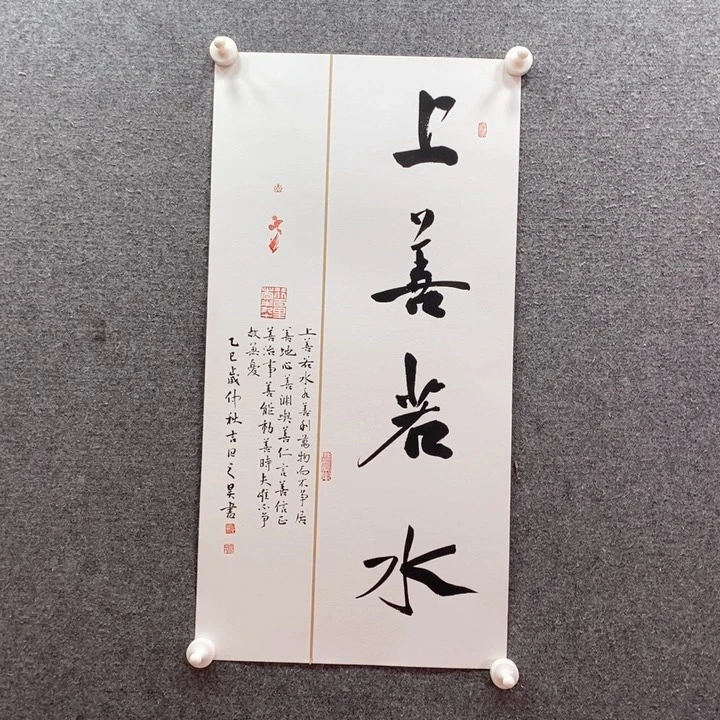 上善若水
上善若水水善利萬物而不争居
善地心善渊與善仁言善信正
善治事善能動善時夫惟不争
故無憂
乙巳歲仲秋吉日之昊書